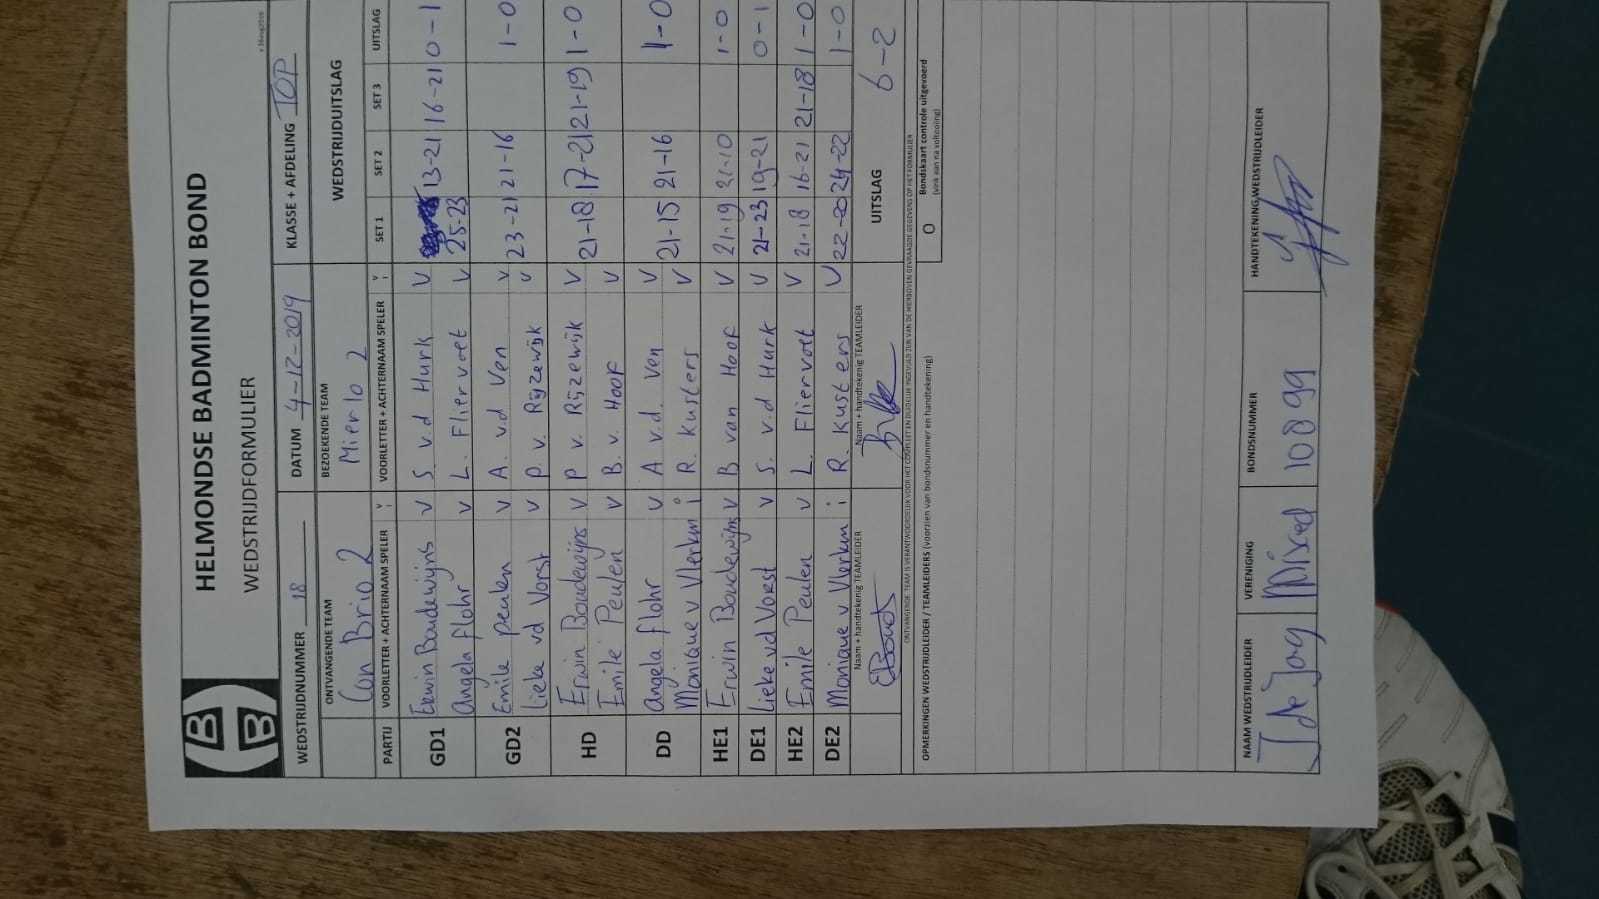 HELMONDSE BADMINTON BOND
WEDSTRIJDFORMULIER
WEDSTRIJDNUMMER 18 DATUM 4-12-2019 KLASSE + AFDELING TOP
ONTVANGENDE TEAM BEZOEKENDE TEAM WEDSTRIJDUITSLAG
Con Brio 2 Mierlo 2
PARTIJ VOORLETTER + ACHTERNAAM SPELER V i VOORLETTER + ACHTERNAAM SPELER V i SET 1 SET 2 SET 3 UITSLAG
GD1 Erwin Boudewijns V S v.d Hurk V 25-23 13-21 16-21 0-1
Angela flohr V L. Fliervoet V
GD2 Emile peulen V A. v.d Ven V 23-21 21-16 1-0
Lieke vd Vorst V P. v. Rijzewijk V
HD Erwin Boudewijns V P v. Rijzewijk V 21-18 17-21 21-19 1-0
Emile Peulen V B. v. Hoof V
DD Angela flohr V A v.d. Ven V 21-15 21-16 1-0
Monique v Vlerken i R. Kusters V
HE1 Erwin Boudewijns V B van Hoof V 21-19 21-10 1-0
DE1 Lieke vd Vorst V S. v.d Hurk V 21-23 19-21 0-1
HE2 Emile Peulen V L. Fliervoet V 21-18 16-21 21-18 1-0
DE2 Monique v Vlerken i R. Kusters V 22-20 24-22 1-0
Naam + handtekenig TEAMLEIDER Naam + handtekenig TEAMLEIDER UITSLAG 6-2
ONTVANGENDE TEAM IS VERANTWOORDELIJK VOOR HET COMPLEET EN DUIDELIJK INGEVULD ZIJN VAN DE HIERBOVEN GEVRAAGDE GEGEVENS OP HET FORMULIER
OPMERKINGEN WEDSTRIJDLEIDER / TEAMLEIDERS (voorzien van bondsnummer en handtekening) O Bondskaart controle uitgevoerd
(vink aan na voltooing)
NAAM WEDSTRIJDLEIDER VERENIGING BONDSNUMMER HANDTEKENING WEDSTRIJDLEIDER
J de Jag Mixed 10899